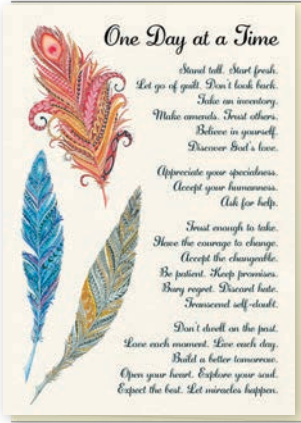 One Day at a Time
Stand tall. Start fresh.
Let go of guilt. Don't look back.
Take an inventory.
Make amends. Trust others.
Believe in yourself.
Discover God's love.
Appreciate your specialness.
Accept your humanness.
Ask for help.
Trust enough to take.
Have the courage to change.
Accept the changeable.
Be patient. Keep promises.
Bury regret. Discard hate.
Transcend self-doubt.
Don't dwell on the past.
Love each moment. Live each day.
Build a better tomorrow.
Open your heart. Explore your soul.
Expect the best. Let miracles happen.